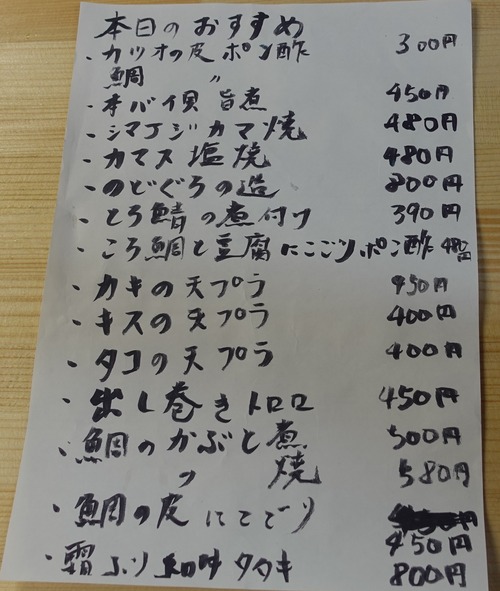 本日のおすすめ
・カツオの皮ポン酢 300円
鯛 〃
・本バイ貝 旨煮 450円
・シマアジカマ焼 480円
・カマス塩焼 480円
・のどぐろの造 800円
・とろ鯖の煮付け 390円
・ころ鯛と豆腐にこごりポン酢 480円
・カキの天プラ 450円
・キスの天プラ 400円
・タコの天プラ 400円
・出し巻きトロロ 450円
・鯛のかぶと煮 500円
〃 焼 580円
・鯛の皮にこごり 450円
・霜ふり タタキ 800円